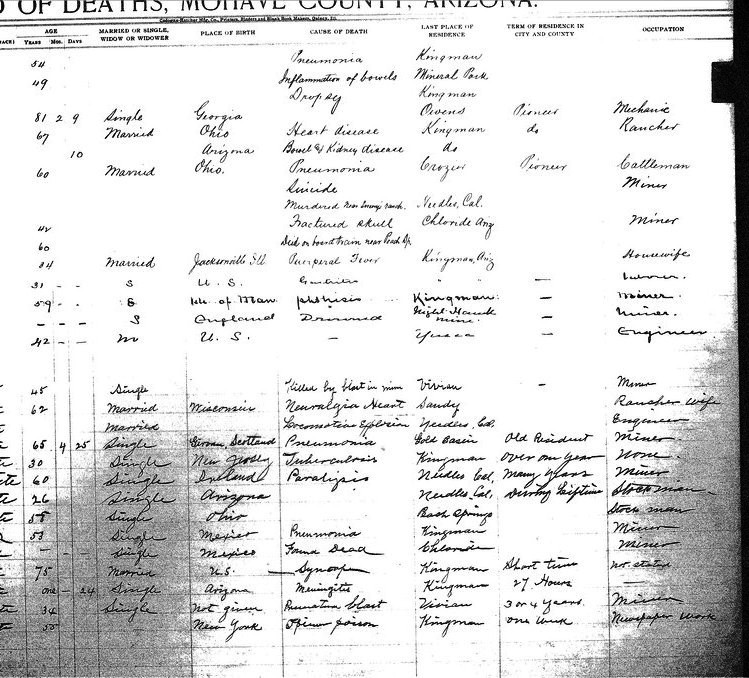 D OF DEATHS, MOHAVE COUNTY, ARIZONA.
AGE
YEARS Mos. DAYS
MARRIED OR SINGLE, WIDOW OR WIDOWER
PLACE OF BIRTH
CAUSE OF DEATH
LAST PLACE OF RESIDENCE
TERM OF RESIDENCE IN CITY AND COUNTY
OCCUPATION
54 Pneumonia Kingman
49 Inflammation of bowels Mineral Park
Dropsy Kingman
81 2 9 Single Georgia Owens Pioneer Mechanic
67 Married Ohio Heart disease Kingman do Rancher
10 Arizona Bowel & Kidney disease do
60 Married Ohio. Pneumonia Crozier Pioneer Cattleman
Suicide Miner
Murdered near ranch. Needles, Cal.
42 Fractured skull Chloride Ariz Miner
60 Died on board train near Peach
34 Married Jacksonville Ill Puerperal Fever Kingman, Ariz Housewife
31 - - S U. S. " " -
59 - - S Isle of Man phthisis Kingman - Miner.
- - - S England Drowned Night Hawk mine. - Miner.
42 - - m U. S. - Yucca - Engineer
45 Single Killed by blast in mine Vivian - Miner
62 Married Wisconsin Neuralgia Heart Sandy Rancher Wife
Married Locomotive Explosion Needles, Cal. Engineer
65 4 25 Single Girvan Scotland Pneumonia Gold Basin Old Resident Miner
30 Single New Jersey Tuberculosis Kingman over one year None
60 Single Ireland Paralysis Needles Cal, Many years Miner
26 Single Arizona Needles, Cal. During Lifetime Stockman
58 Single Ohio Bath Springs Stock man
53 Single Mexico Pneumonia Kingman Miner
- - Single Mexico Found Dead Chloride Miner
75 Married U.S. Syncope Kingman Short time no stated
one - 24 Single Arizona Meningitis Kingman 27 Hours -
34 Single Not given blast Vivian 3 or 4 years Miner
55 New York poison Kingman one week Newspaper Work